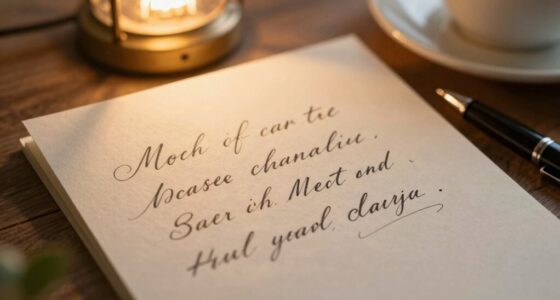 Moch if car tre
bcasee chanaliu.
Saer ih. Meet and.
Hul yead, davja.